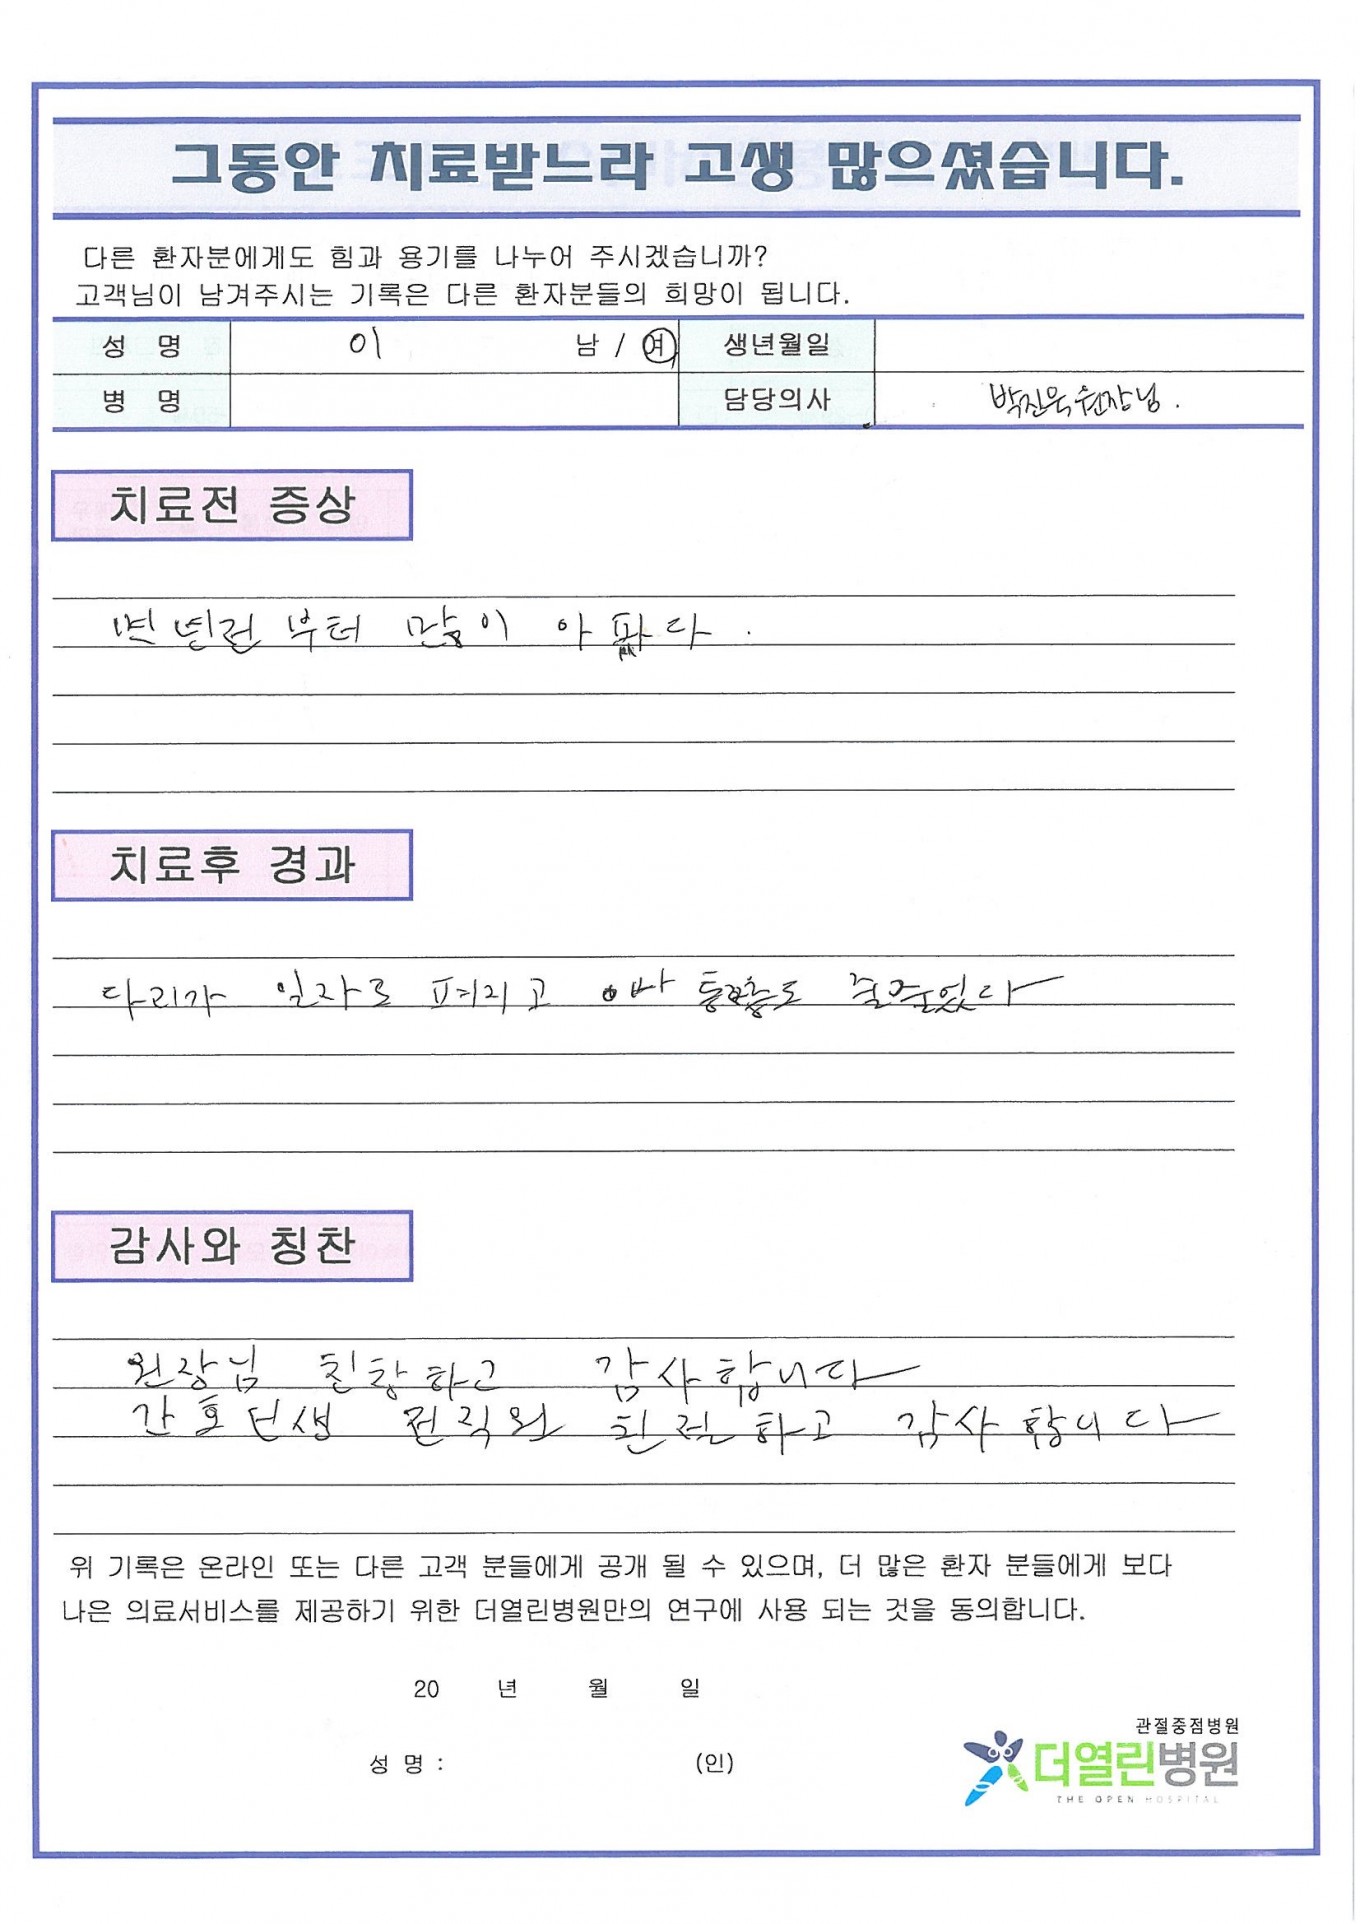 그동안 치료받느라 고생 많으셨습니다.
다른 환자분에게도 힘과 용기를 나누어 주시겠습니까?
고객님이 남겨주시는 기록은 다른 환자분들의 희망이 됩니다.
성 명 이 남 / 여 생년월일
병 명 담당의사 박진욱 원장님.
치료전 증상
부터 많이 아 다.
치료후 경과
다리가 일자로 펴지고 줄었다
감사와 칭찬
원장님 하고 감사합니다
간호 하고 감사합니다
위 기록은 온라인 또는 다른 고객 분들에게 공개 될 수 있으며, 더 많은 환자 분들에게 보다
나은 의료서비스를 제공하기 위한 더열린병원만의 연구에 사용 되는 것을 동의합니다.
20 년 월 일
성 명 : (인)
관절중점병원
더열린병원
THE OPEN HOSPITAL